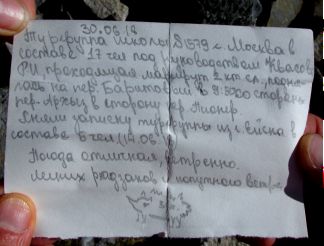 30.06.18
Тургруппа школы №1579 г. Москва в
составе 17 чел под руководством
РИ, проходящая маршрут 2 кт сл, подня
лась на пер. Баритовый в 9:50 со стороны
пер. Архыз в сторону пер. Пионер.
Сняли записку тургруппы из г. Ейска в
составе 6 чел (14.06.
Погода отличная, ветренно.
Легких рюкзаков и попутного ветра